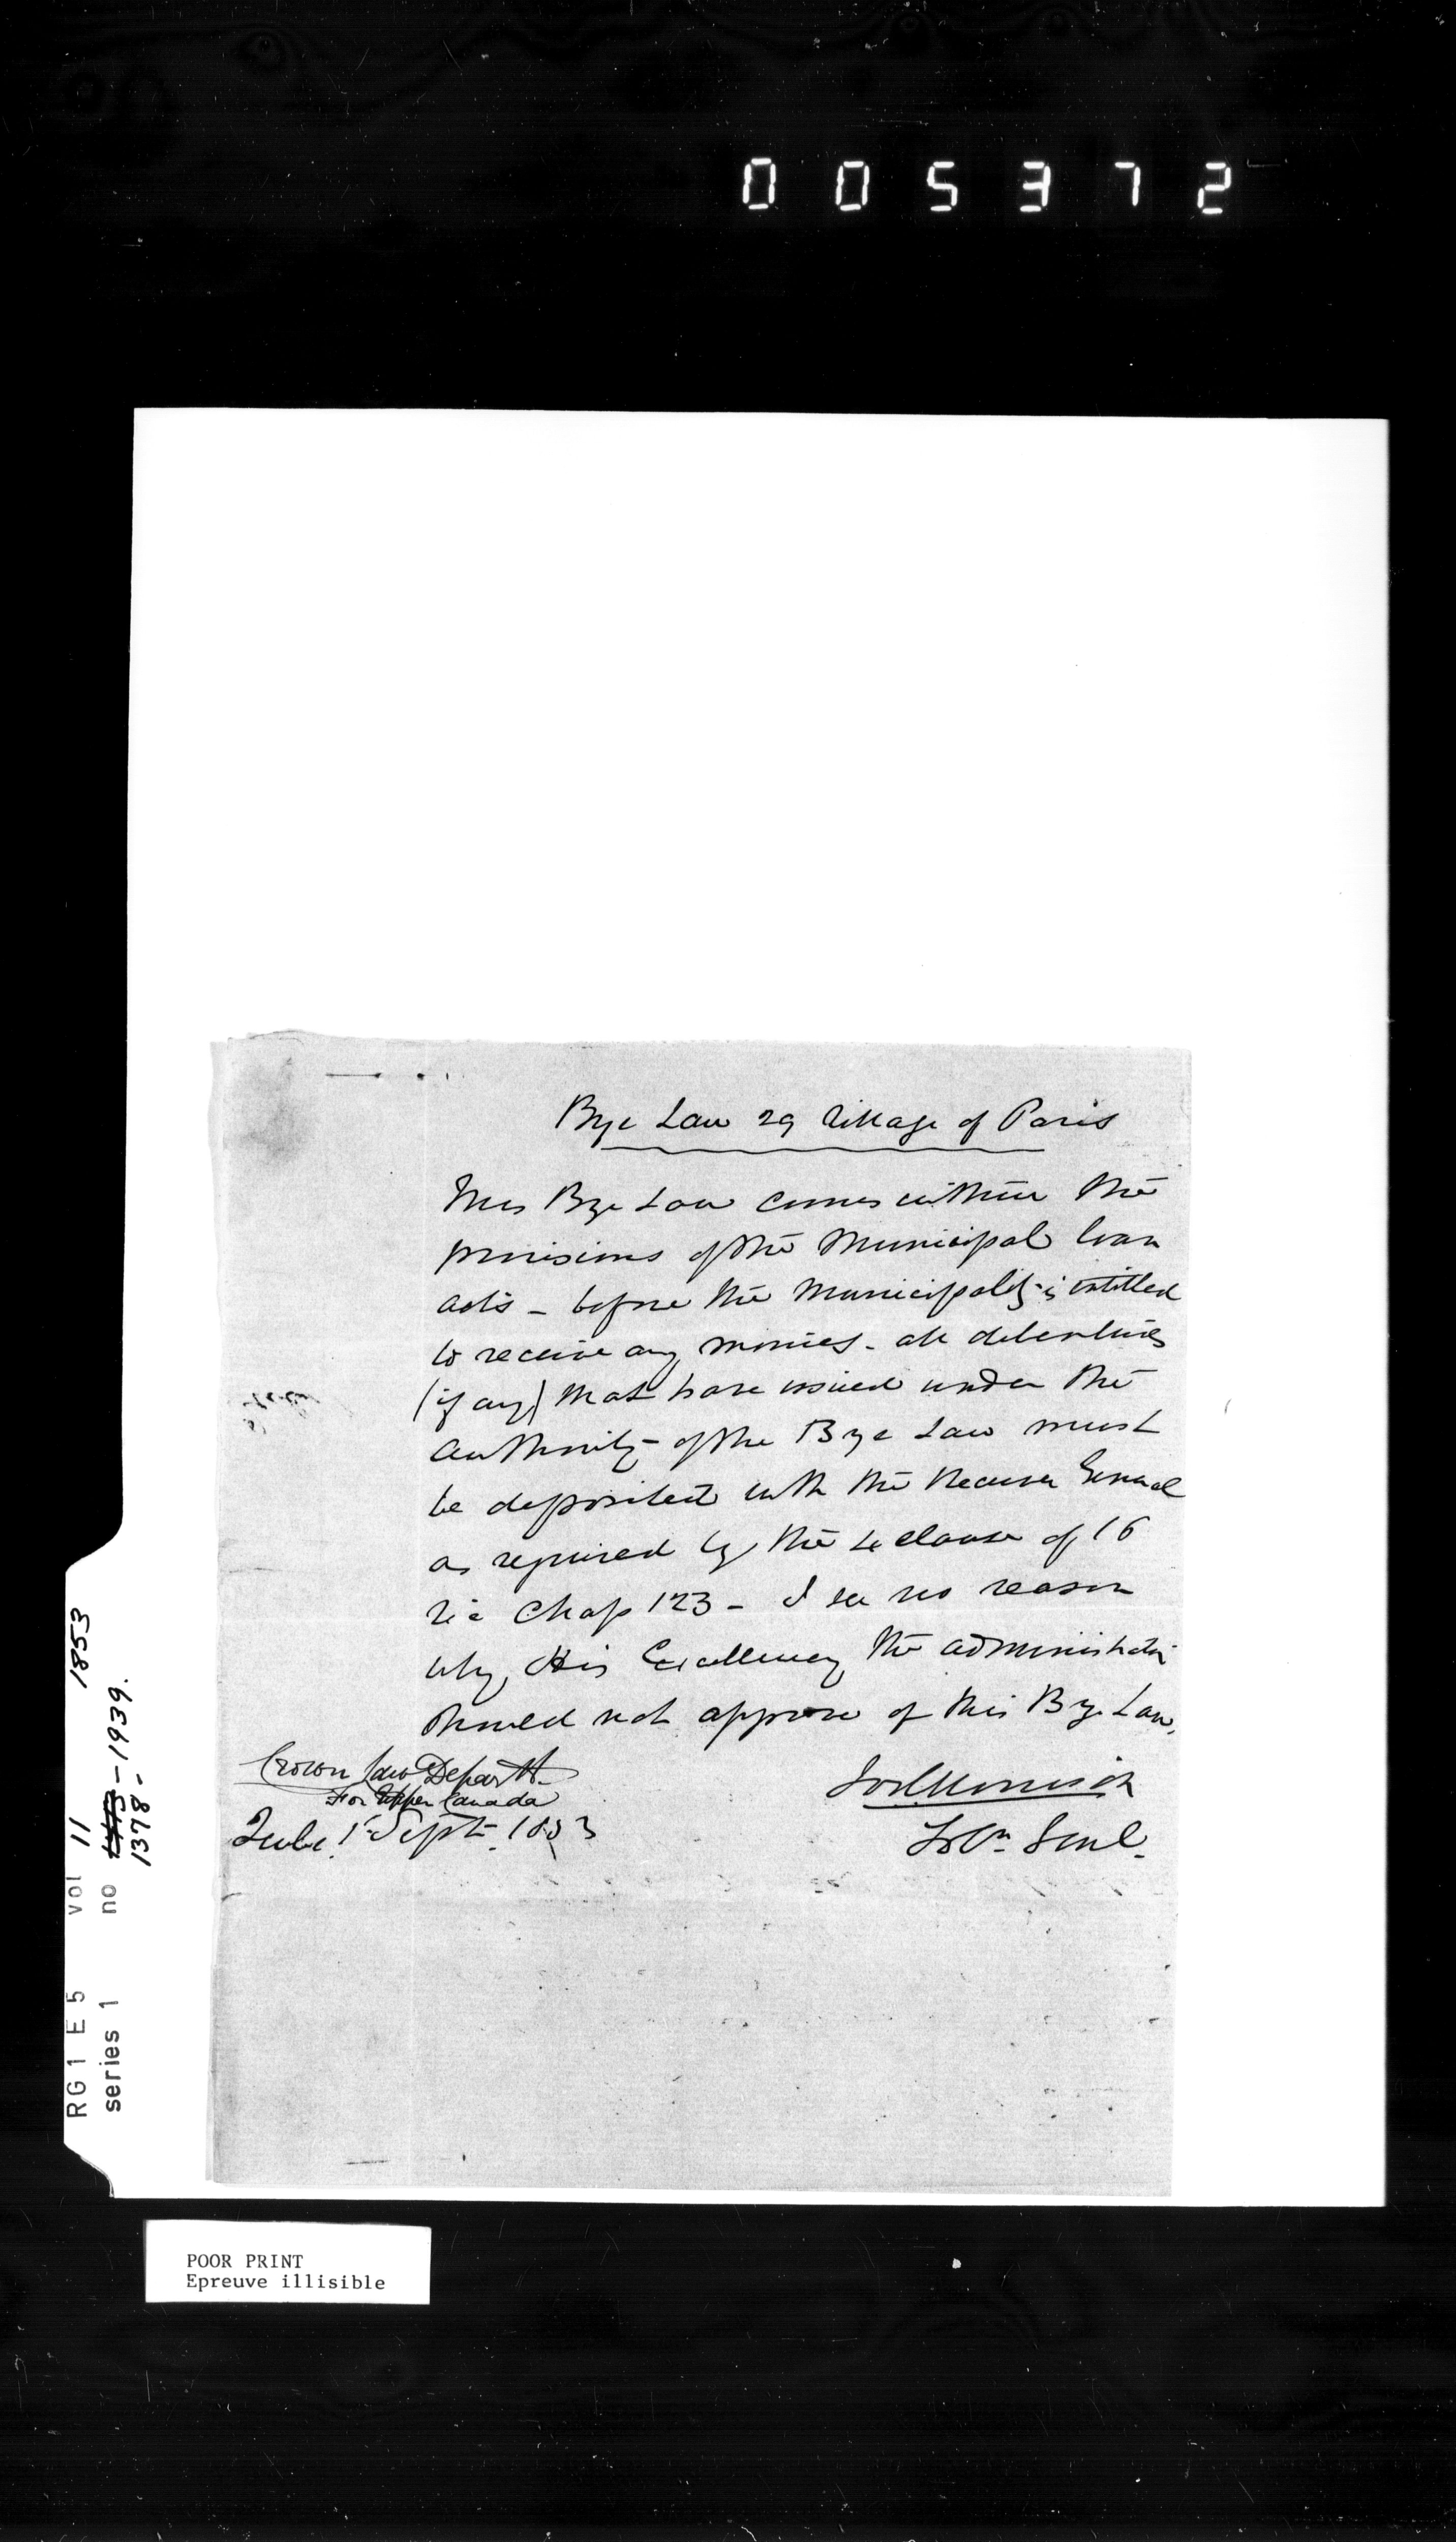 005372
Bye Law 29 Village of Paris
This Bye Law comes within the
provisions of the Municipal loan
acts - before the Municipality is entitled
to receive any monies - all debentures
(if any) that have issued under the
authority of the Bye Law must
be deposited with the Receiver General
as required by the clause of 16
Vic Chap 123 - I see no reason
why His Excellency the administrator
should not approve of this Bye Law.
Crown Law Departt.
For Upper Canada
Quebec 1 Sept. 1853
Jos C Morrison
Sol. Genl.
RG 1 E 5 vol 11 1853
series 1 no 1378-1939.
POOR PRINT
Epreuve illisible